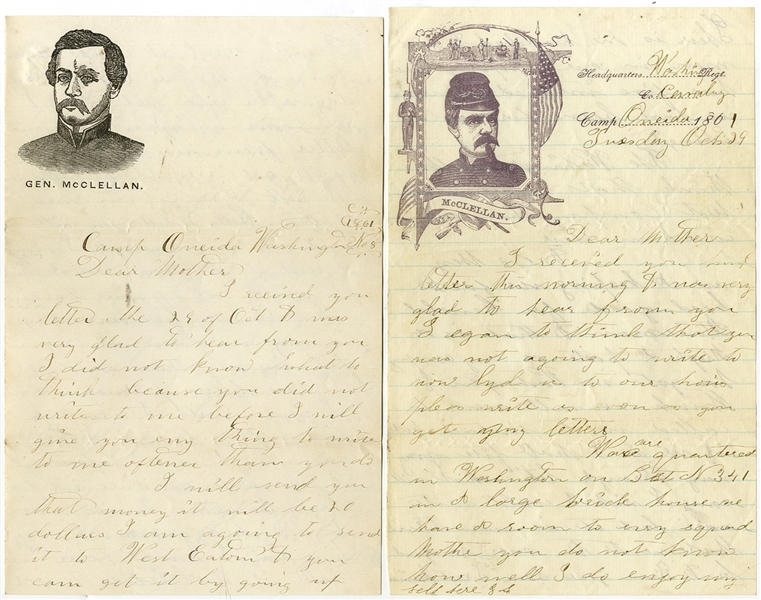 GEN. McCLELLAN.
1861
Camp Oneida Washington No 8
Dear Mother
I receved you
letter the 29 of Oct & was
very glad to hear from you
I did not know what to
think because you did not
write to me before I will
give you eny thing to write
to me oftener than you do
I will send you
that money it will be 20
dollars I am agoing to send
it to West Eaton & you
can get it by going up
McCLELLAN.
Headquarters Regt.
Co. Cervalry
Camp Oneida 1861
Tuesday Oct 29
Dear Mother
I receved you
letter this morning & was very
glad to hear from you
I egan to think that you
was not agoing to write to
now
pleas write as soon as you
get my letters
We are quartered
in Washington on B st N 341
in a large brick house we
have a room to evry squad
Mother you do not know
how well I do enjoy my
self here